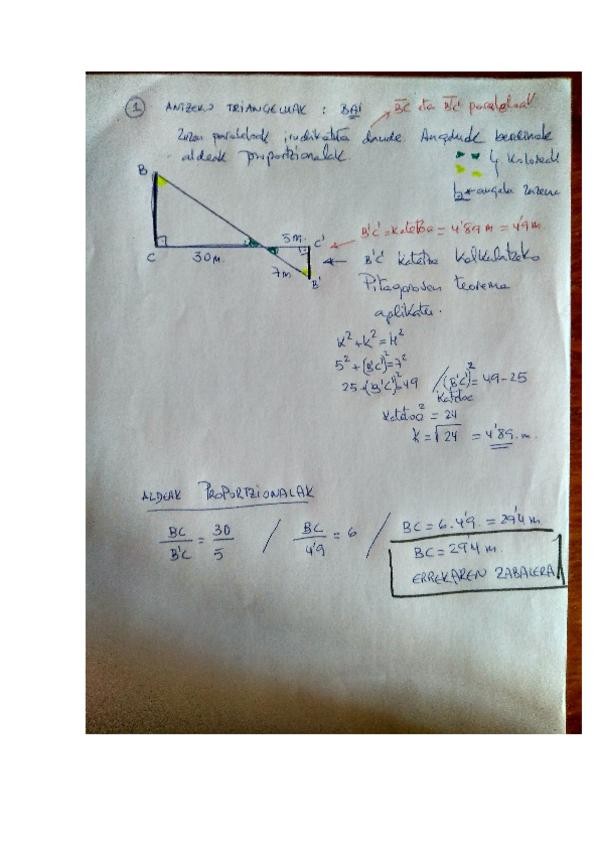 ① ANTZEKO TRIANGELUAK : BAI BC eta B'C' paraleloak
Zuzen paraleloak, indikatuta daude. Angeluak berdinak
aldeak proportzionalak. 4 koloreak
b angelu zuzena
B
5m. C' B'C' = Katetoa = 4'89 m = 4'9 m.
C 30m. B'C' katetoa kalkulatzeko
7m B' Pitagorasen teorema
aplikatu.
k² + k² = H²
5² + (B'C')² = 7²
25 + (B'C')² = 49 / (B'C')² = 49 - 25
Katetoa
Katetoa² = 24
K = √24 = 4'89 m.
ALDEAK PROPORTZIONALAK
BC / B'C' = 30 / 5 / BC / 4'9 = 6 / BC = 6 . 4'9 = 29'4 m
BC = 29'4 m.
ERREKAREN ZABALERA